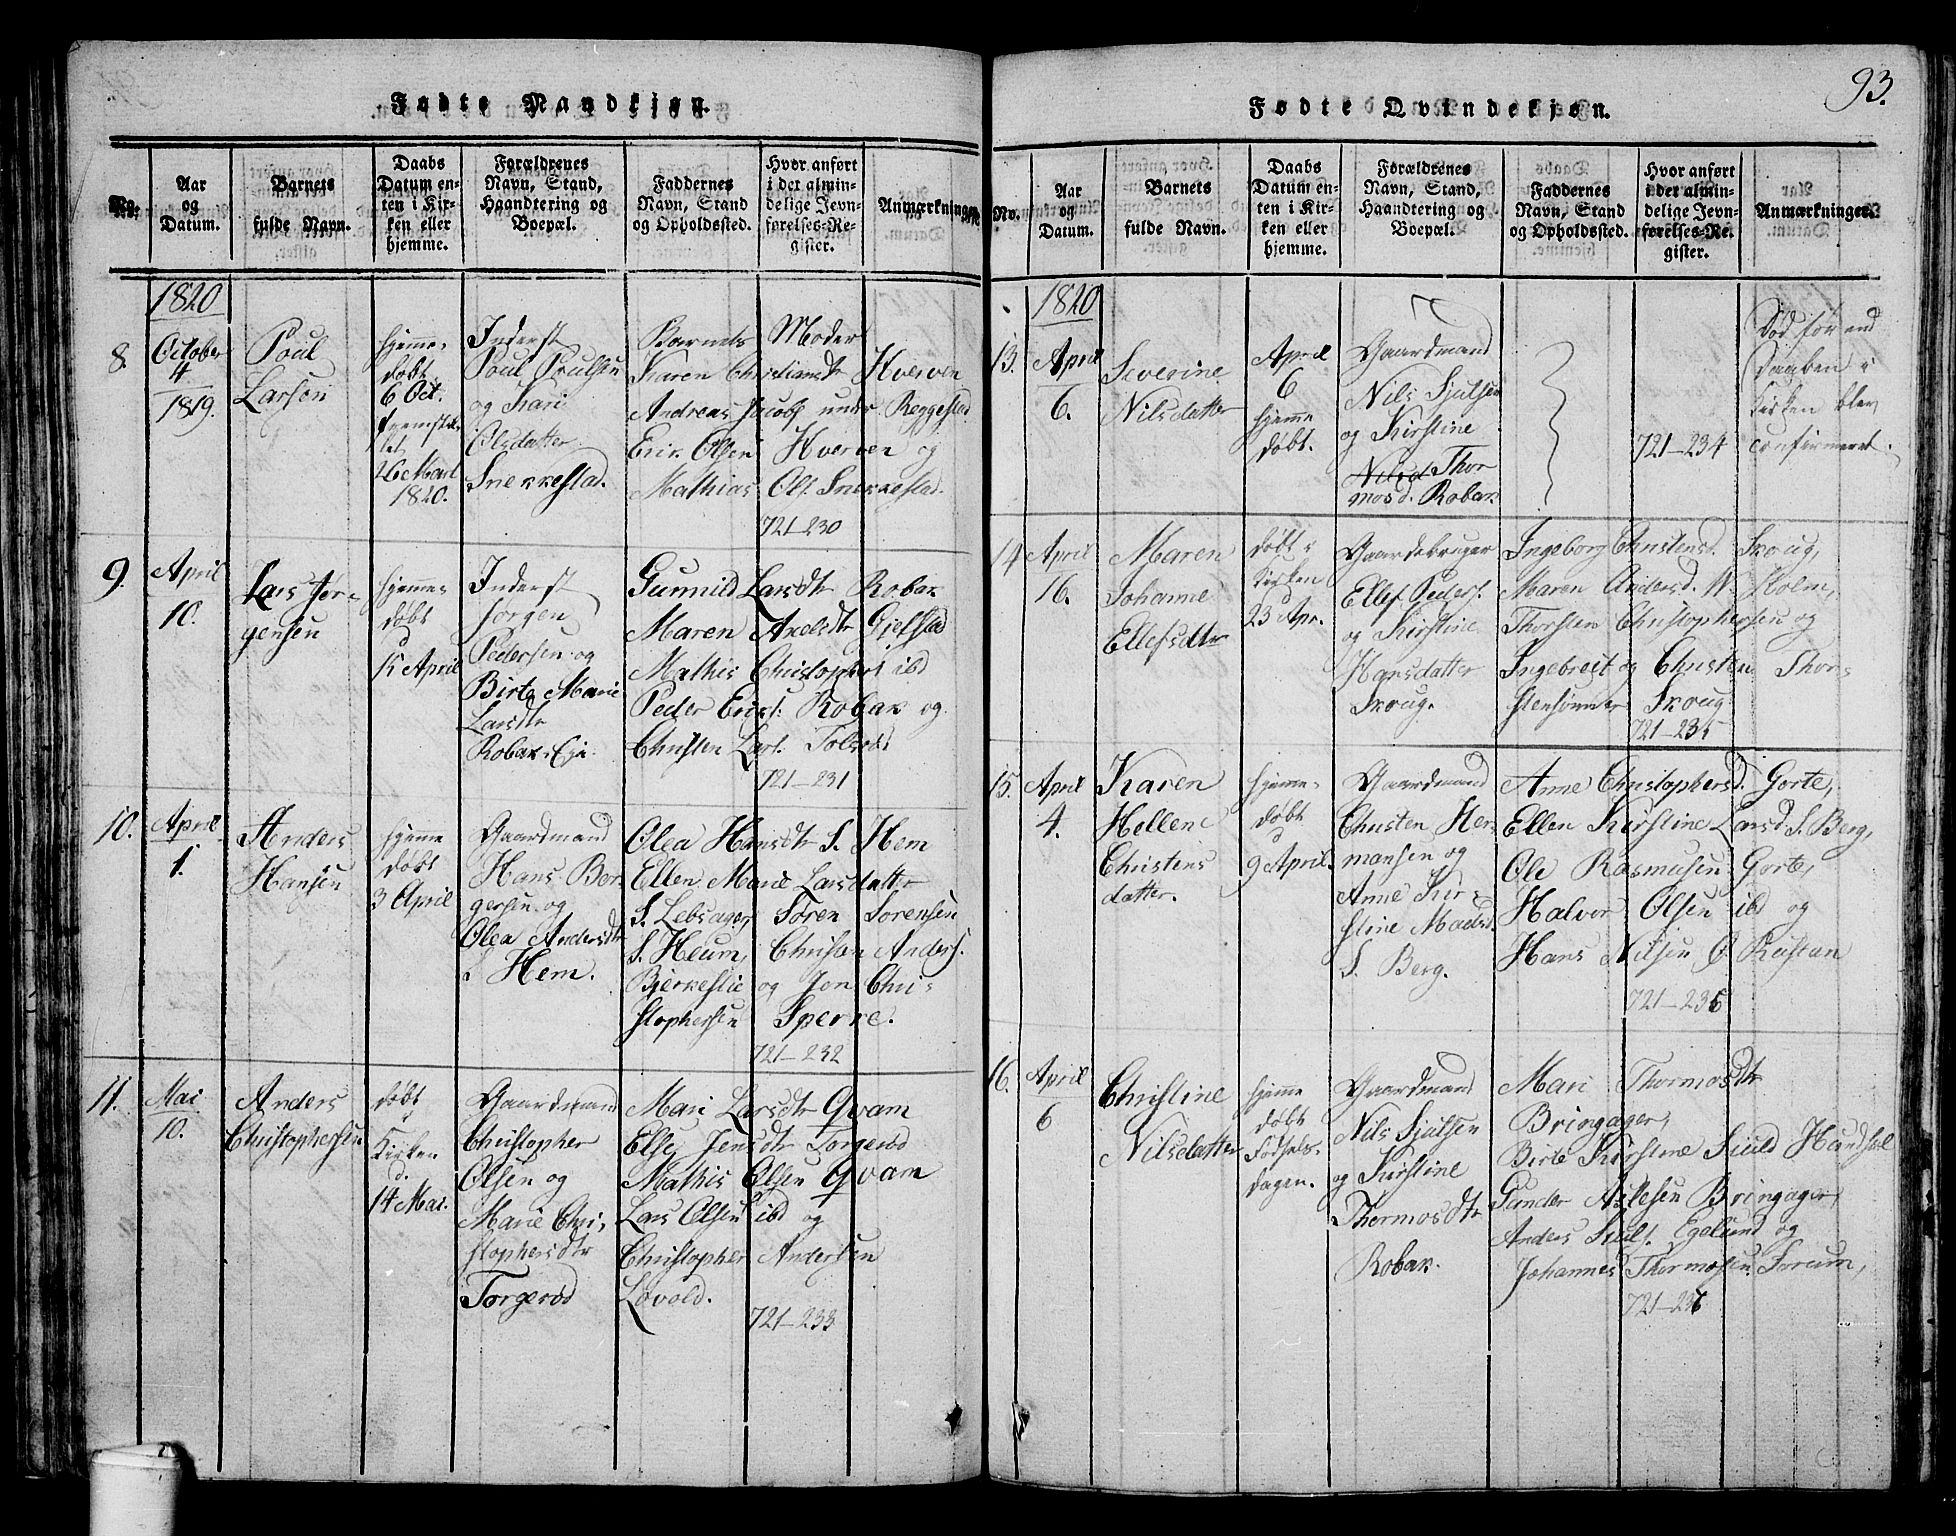 93.
Fødte Mandkjøn.
No.
Aar
og
Datum.
Barnets
fulde Navn.
Daabs
Datum en-
ten i Kir-
ken eller
hjemme.
Forældrenes
Navn, Stand,
Haandtering og
Boepæl.
Faddernes
Navn, Stand
og Opholdssted.
Hvor anført
i det almin-
delige Jevn-
førelses-Re-
gister.
Anmærkninger.
1820
8.
October
4
1819.
Poul
Larsen
hjemme-
døbt
6 Oct.
fremstil-
let
26 Mart
1820.
Inderst
Poul Poulsen
og Kari
Olsdatter
Snekkestad.
Barnets Moder
Karen Christiansdr Hverven
Andreas Jacobs under Reggestad
Eric Olsen Hverven og
Mathias Ols. Snekkestad.
721-230
9.
April
10.
Lars Jør-
gensen
hjemme-
døbt
15 April
Inderst
Jørgen
Pedersen og
Birte Marie
Larsdtr
Robak Eje.
Gunnild Larsdtr Robak
Maren Axelsdtr Gjefstad
Mathis Christophers ibd
Peder Ericks. Robak og
Christen Lars. Tolsrød
721-231
10.
April
1.
Anders
Hansen
hjemme
døbt
3 April
Gaardmand
Hans Ber-
gersen og
Olea Andersdtr
S. Hem.
Olea Hansdtr S. Hem
Ellen Marie Larsdatter
S. Lebsager, Søren Sørensen
S. Heum, Christian Anders.
Bjerkeslie og Jon Chri-
stophersen Sperre.
721-232
11.
Mai
10.
Anders
Christophersen
døbt
i
Kirken
d.
14 Mai.
Gaardmand
Christopher
Olsen og
Marie Chri-
stophersdtr
Torgerød
Mari Larsdtr Qvam
Else Jensdtr Torgerød
Mathis Olsen Qvam
Lars Olsen ibd og
Christopher Andersen
Løvold.
721-233
Fødte Qvindekjøn.
No.
Aar
og
Datum.
Barnets
fulde Navn.
Daabs
Datum en-
ten i Kir-
ken eller
hjemme.
Forældrenes
Navn, Stand,
Haandtering og
Boepæl.
Faddernes
Navn, Stand
og Opholdssted.
Hvor anført
i det almin-
delige Jevn-
førelses-Re-
gister.
Anmærkninger.
1820
13.
April
6.
Severine
Nilsdatter
April
6
hjemme
døbt.
Gaardmand
Nils Sjulsen
og Kirstine
Nilsd Thor
mosd. Robak
721-234
Død før end
Daaben i
Kirken blev
confirmeret.
14
April
16.
Maren
Johanne
Ellefsdtr
døbt i
Kirken
23 Apr.
Gaardebruger
Ellef Peders.
og Kirstine
Hansdatter
Skoug.
Ingeborg Christensd. Skoug,
Maren Andersd. N. Holm,
Thorsten Christophersen og
Ingebreit og Christen Thor-
stensønner Skoug
721-235
15.
April
4.
Karen
Hellene
Christens
datter.
hjemme-
døbt
9 April.
Gaardmand
Christen Her-
mansen og
Anne Kir-
stine Madsd.
S. Berg.
Anne Christophersd. Gorte,
Ellen Kirstine Larsd. S. Berg,
Ole Rasmusen Gorte,
Halvor Olsen ibd og
Hans Nilsen Ø. Rustan
721-236
16.
April
6
Christine
Nilsdatter
hjemme
døbt
Fødsels-
dagen.
Gaardmand
Nils Sjulsen
og Kirstine
Thormosdtr
Robak.
Mari Thormosdtr
Bringager,
Birte Kirstine Siuld Hundstal
Gunder Aslesen Bringager,
Anders Siuls. Egelund og
Johannes Thormosen Sorum,
721-237